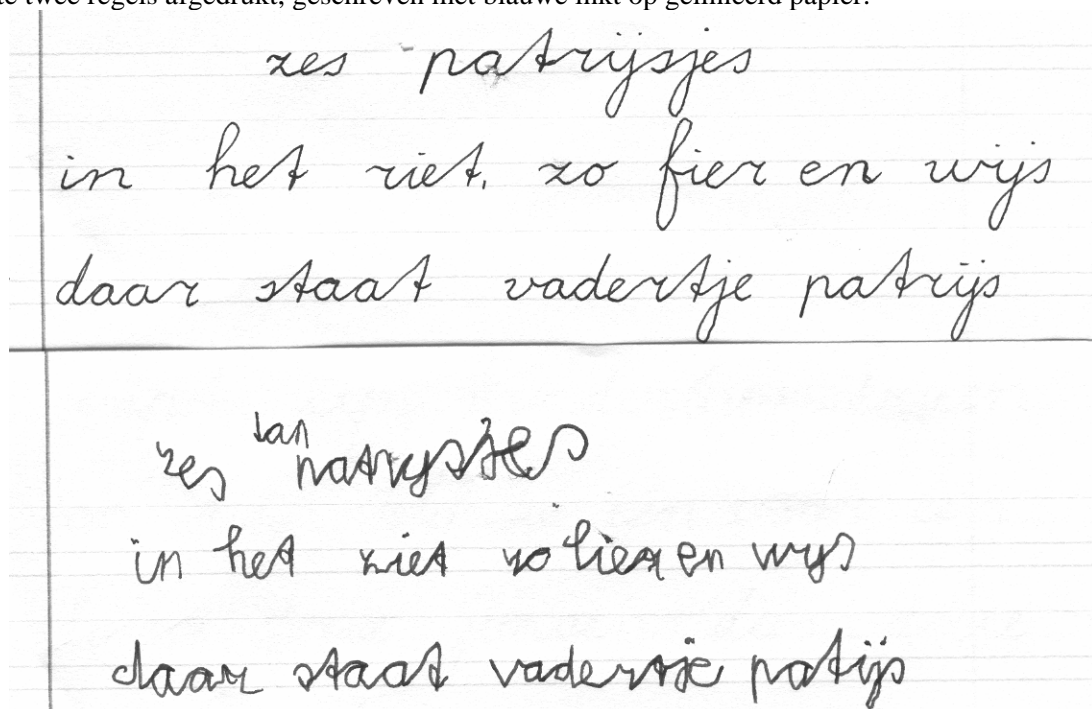 te twee regels afgedrukt, geschreven met blauwe inkt op gelinieerd papier.
zes patrijsjes
in het riet, zo fier en wijs
daar staat vadertje patrijs
zes patrysjes
in het riet zo lier en wys
daar staat vadertje patijs